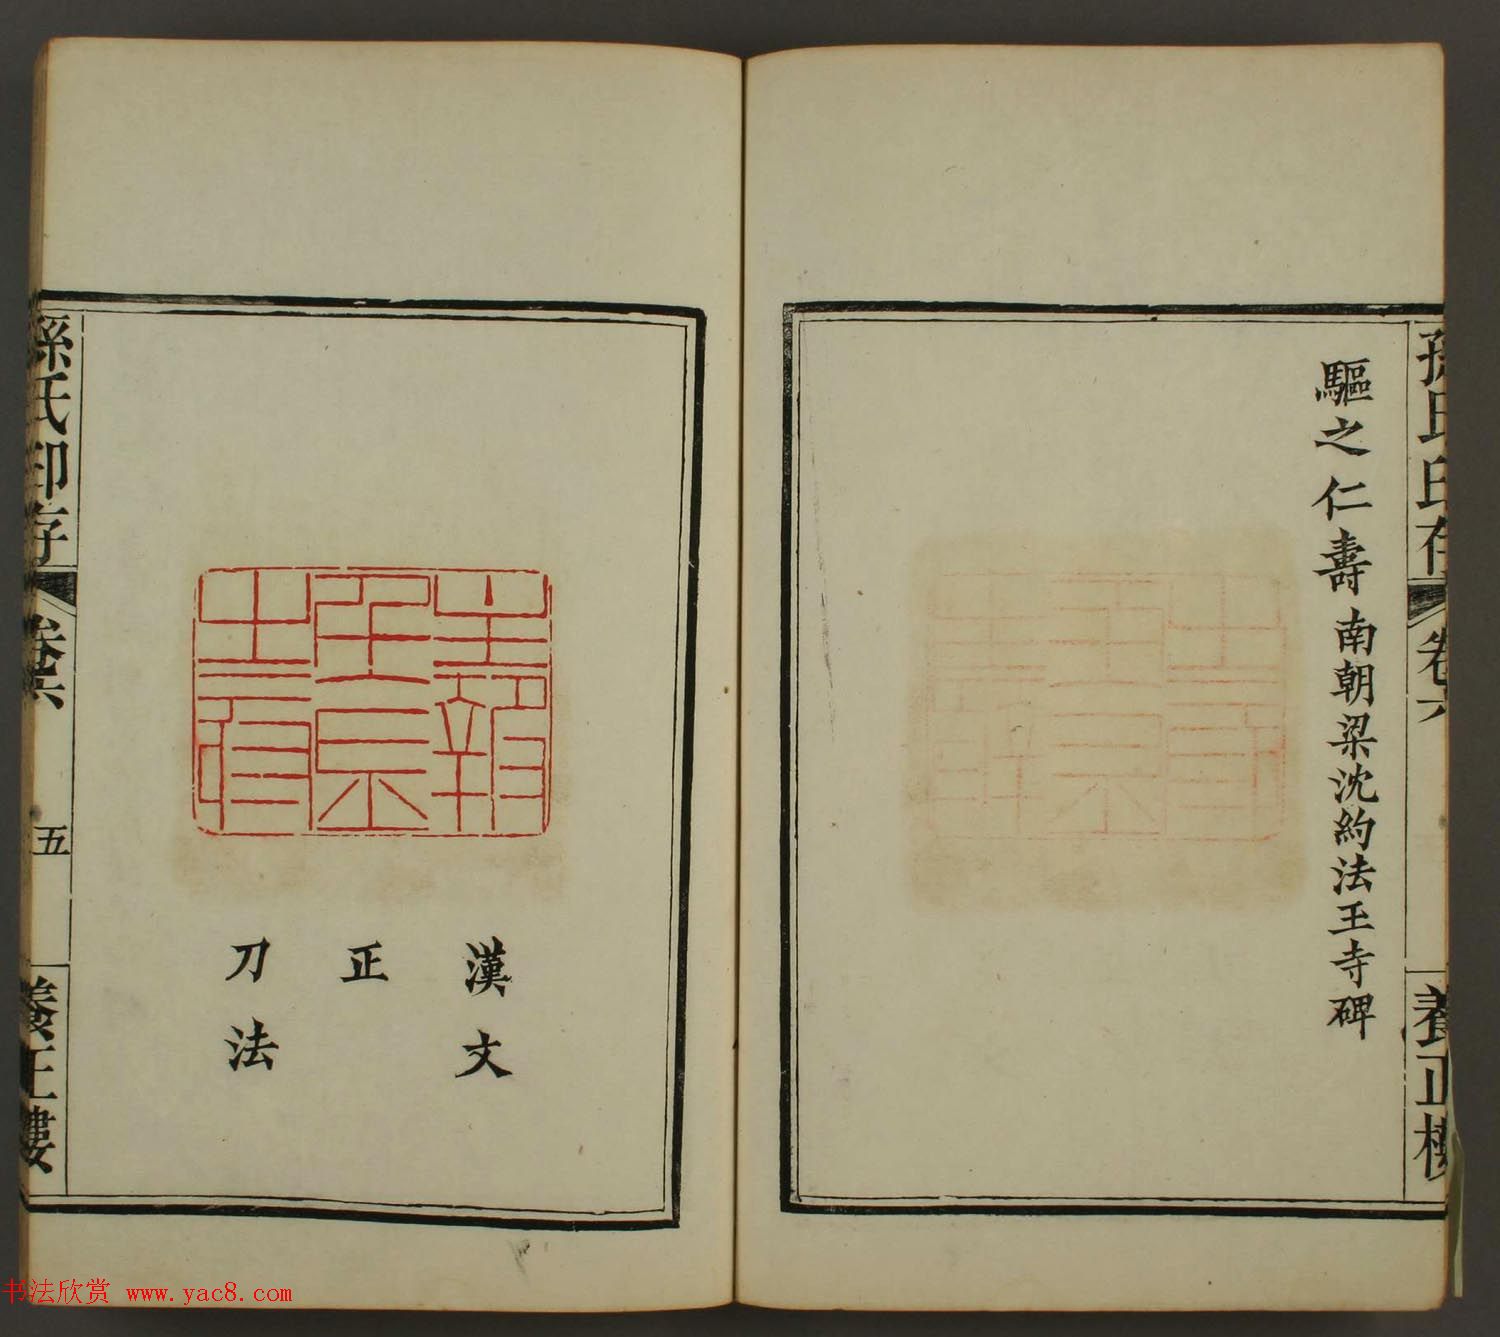 孫氏印存
卷六
養正樓
驅之仁壽南朝梁沈約法王寺碑
漢文
正
刀法
孫氏印存
卷六
五
養正樓
书法欣赏 www.yac8.com